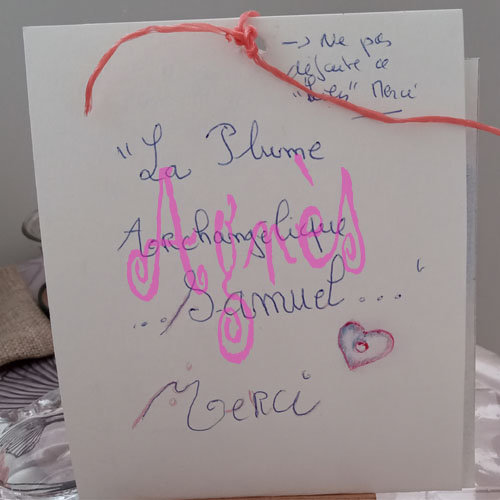 -> Ne pas
défaire ce
"Lien" Merci
"La Plume
Archangélique
...Samuel..."
Merci
Agnès